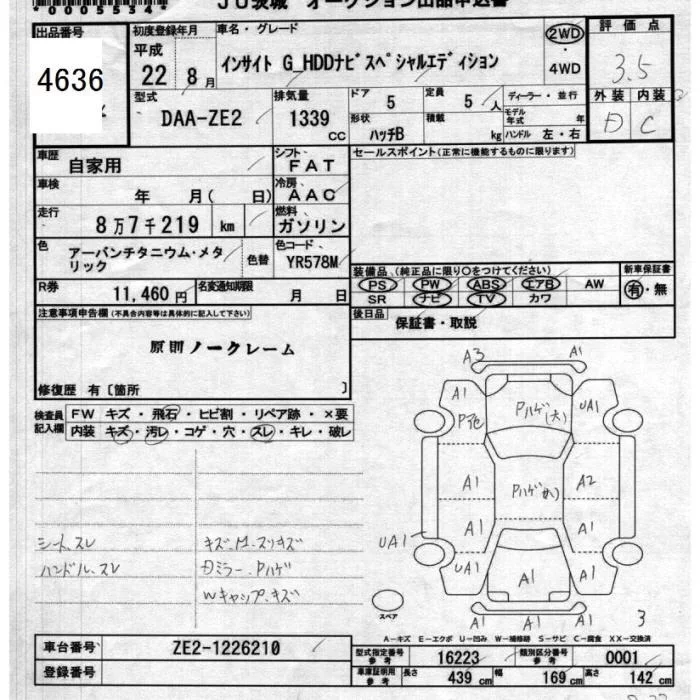 *0005534*
JU茨城 オークション出品申込書
出品番号
4636
初度登録年月
平成
22 8月
車名・グレード
インサイト G_HDDナビスペシャルエディション
2WD
・
4WD
評価点
3.5
外装 内装
D C
型式
DAA-ZE2
排気量
1339
CC
ドア
5
定員
5人
ディーラー・並行
形状
ハッチB
積載
kg
モデル年式 年
ハンドル 左・右
車歴
自家用
シフト
FAT
セールスポイント(正常に機能するものに限ります)
車検
年 月( 日)
冷房
AAC
走行
8万7千219 km
燃料
ガソリン
色
アーバンチタニウム・メタリック
色替
色コード
YR578M
装備品 (純正品に限り○をつけてください)
PS PW ABS エアB AW
SR ナビ TV カワ
新車保証書
有・無
R券
11,460円
名変通知期限
月 日
後日品
保証書・取説
注意事項申告欄(不具合内容等は具体的に記入して下さい)
原則ノークレーム
修復歴 有〔箇所 〕
検査員記入欄
FW キズ・飛石・ヒビ割・リペア跡・×要
内装 キズ・汚レ・コゲ・穴・スレ・キレ・破レ
シート、スレ
ハンドル、スレ
キズ、M、スリキズ
Dミラー、Pハゲ
Wキャップ、キズ
A3 A1
A1
P色
Pハゲ(大)
UA1
A1
Pハゲ(小)
A2
A1
A1
UA1
UA1
A1
A1
A1
A1
3
スペア
A-キズ E-エクボ U-凹み W-補修跡 S-サビ C-腐食 XX-交換済
車台番号
ZE2-1226210
登録番号
型式指定番号
参考
16223
類別区分番号
参考
0001
車庫証明用
参考
長さ 439 cm
幅 169 cm
高さ 142 cm